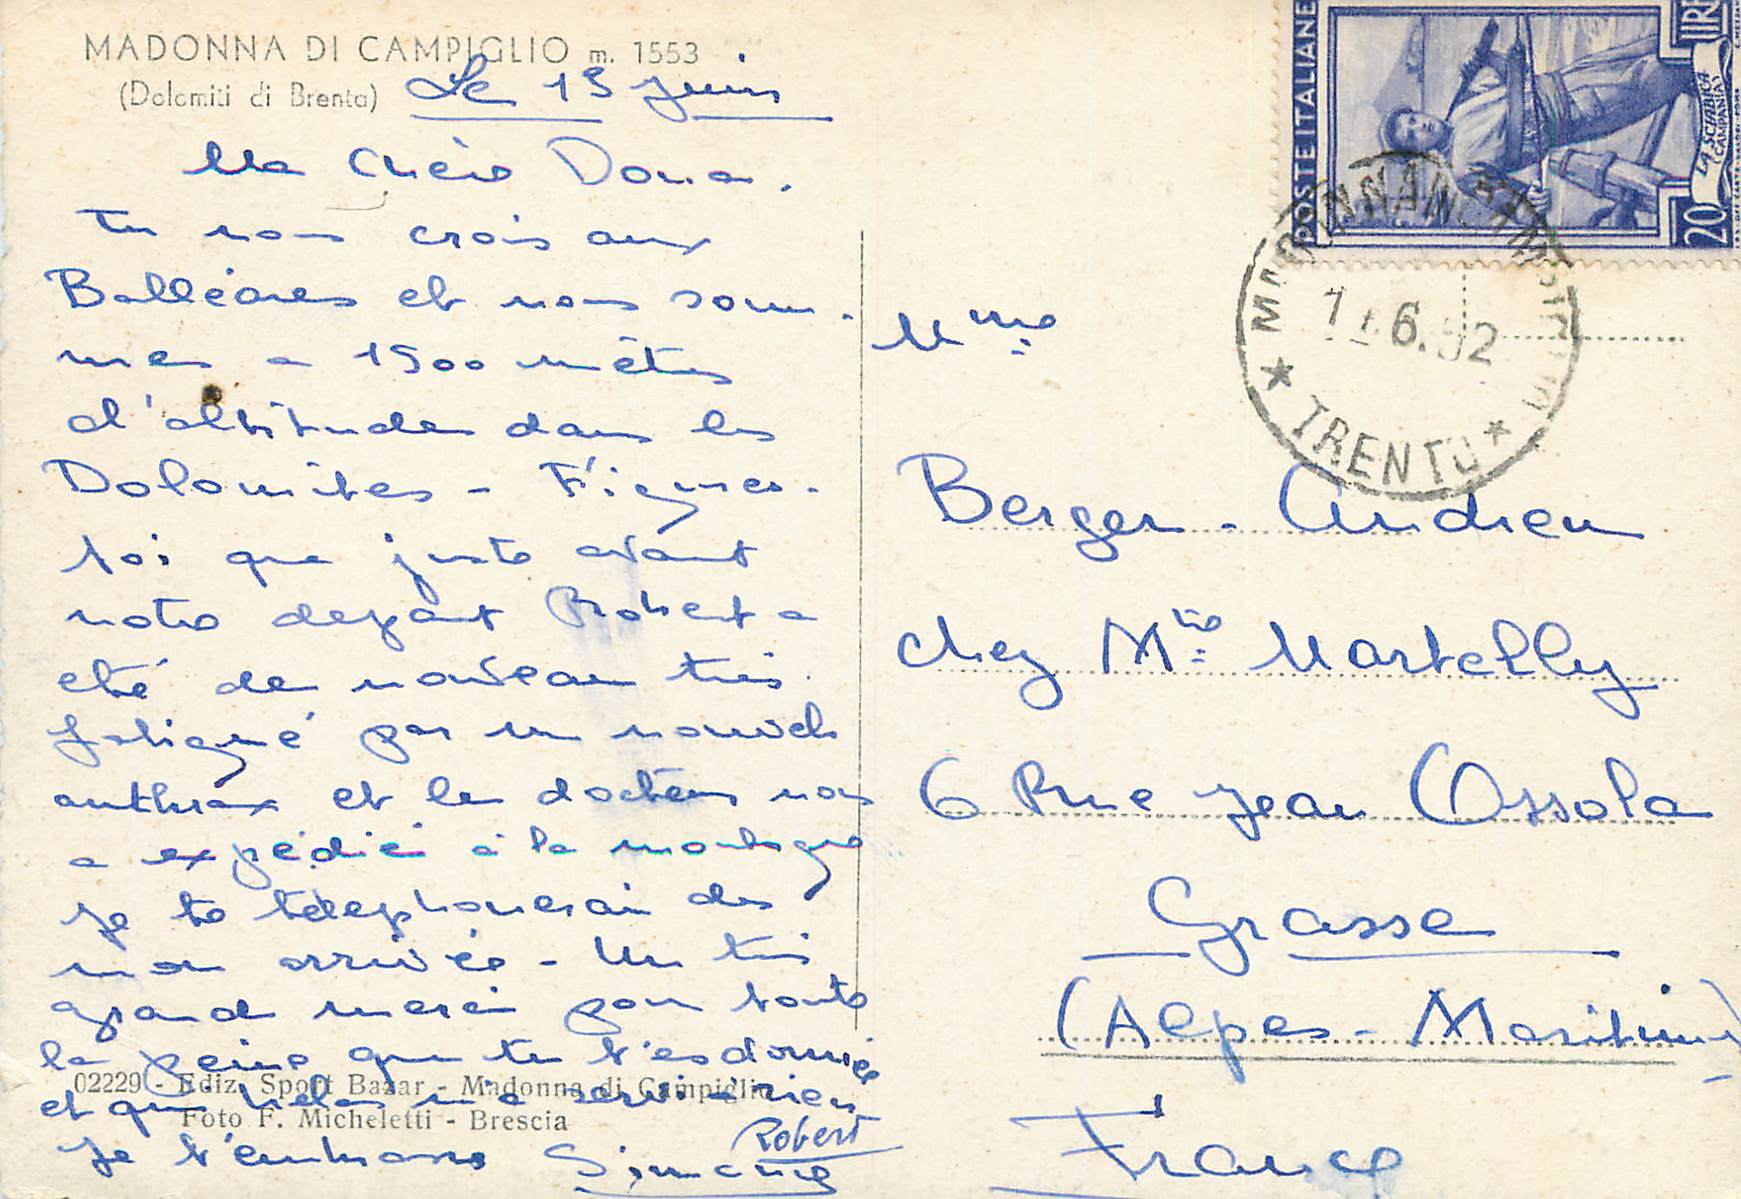 MADONNA DI CAMPIGLIO m. 1553
(Dolomiti di Brenta)
Le 13 Juin
Ma Chère Dona.
Tu nous crois aux
Balléares et nous som-
mes a 1500 mètres
d'altitude dans les
Dolomites - Figures-
toi que juste avant
notre depart Robert a
été de nouveau très
fatigué par un nouvel
anthrax et le docteur nous
a expédié à la montagne
Je te téléphonerai des
mon arrivée - Un très
grand merci pour toute
la peine que tu t'es donnée
et qui hélas n'a servi à rien
Je t'embrasse Simone
Robert
02229 - Ediz. Sport Bazar - Madonna di Campiglio
Foto F. Micheletti - Brescia
POSTE ITALIANE
LIRE
20
LA SCIABICA
(CAMPANIA)
TRENTO
Mme
Berger - Andrieu
chez Mlle Martelly
6 Rue Jean Ossola
Grasse
(Alpes-Maritimes)
France